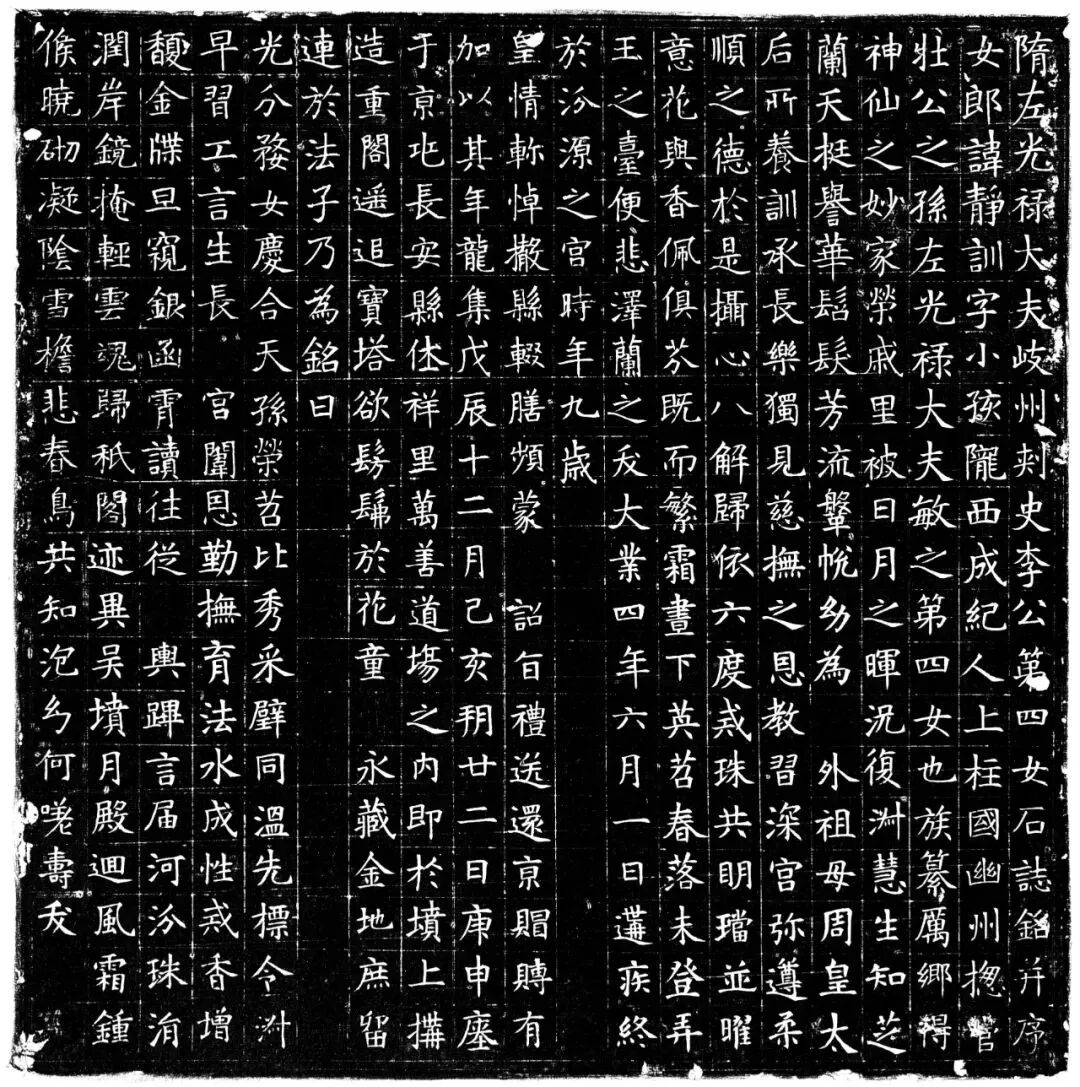 隋左光祿大夫岐州刾史李公第四女石誌銘并序
女郎諱靜訓字小孩隴西成紀人上柱國幽州揔管
壯公之孫左光祿大夫敏之第四女也族纂厲鄉得
神仙之妙家榮戚里被日月之暉況復淑慧生知芝
蘭天挺譽華髫髮芳流鞶帨幼為 外祖母周皇太
后所養訓承長樂獨見慈撫之恩教習深宮弥遵柔
順之德於是攝心八解歸依六度戒珠共明璫並曜
意花與香佩俱芬既而繁霜晝下英苕春落未登弄
玉之臺便悲澤蘭之夭大業四年六月一日遘疾終
於汾源之宮時年九歲
皇情軫悼撤縣輟膳頻蒙 詔旨禮送還京賵賻有
加以其年龍集戊辰十二月己亥朔廿二日庚申瘞
于京兆長安縣休祥里萬善道場之內即於墳上搆
造重閣遥追寶塔欲髣髴於花童 永藏金地庶留
連於法子乃為銘曰
光分婺女慶合天孫榮苕比秀采璧同溫先標令淑
早習工言生長 宮闈恩勤撫育法水成性戒香增
馥金牒旦窺銀函宵讀往從 輿蹕言届河汾珠涓
潤岸鏡掩輕雲魂歸秖閣迹異吳墳月殿迴風霜鍾
候曉砌凝陰雪檐悲春鳥共知泡幻何嗟壽夭